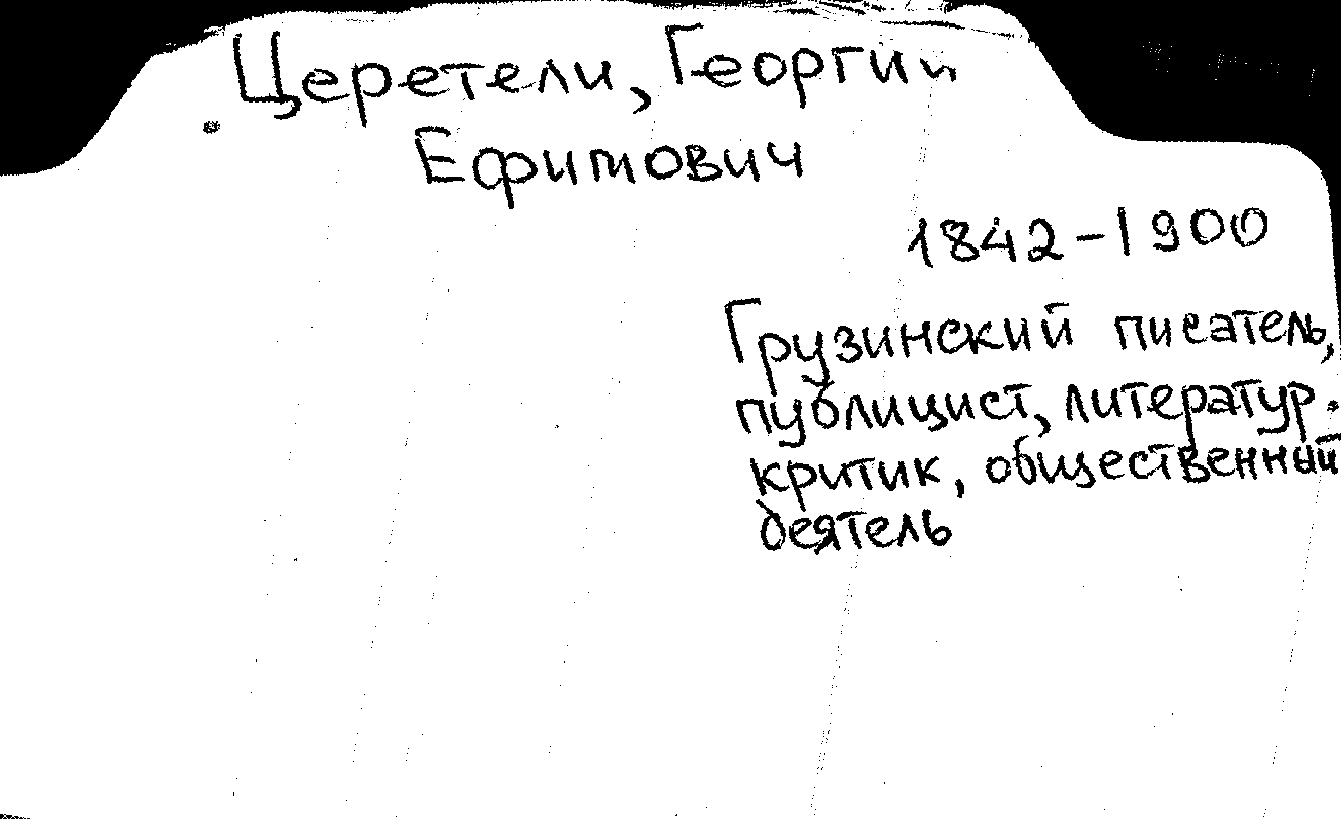 Церетели, Георгий
Ефимович
1842-1900
Грузинский писатель,
публицист, литератур.
критик, общественный
деятель